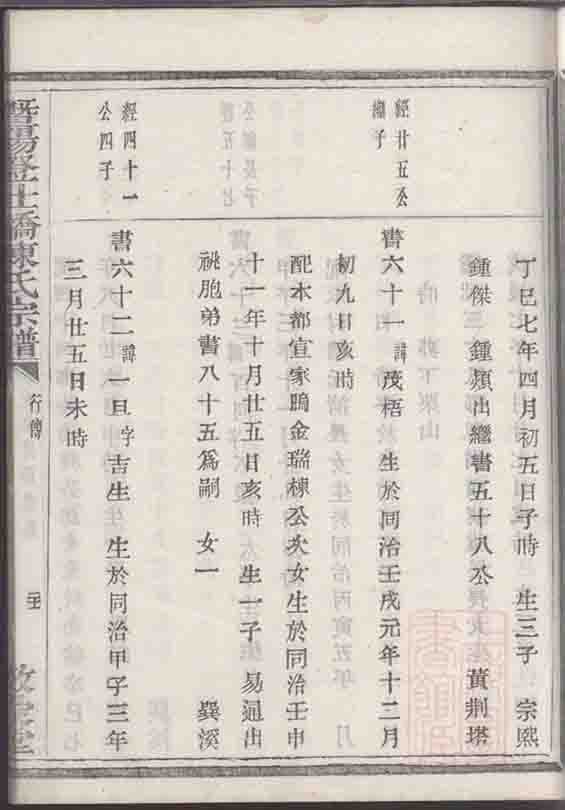 丁巳七年四月初五日子時　生三子　宗熙
鍾傑　鍾頻出繼書五十八公　黃荆塔
經廿五公
繼子
書六十一諱茂梧　生於同治壬戌元年十二月
初九日亥時
配本都宣家塢金瑞棟公次女生於同治壬申
十一年十月廿五日亥時　生一子　易通出
祧胞弟書八十五爲嗣　女一　巽溪
經四十一
公四子
書六十二諱一旦字吉生　生於同治甲子三年
三月廿五日未時
暨陽登仕橋陳氏宗譜
行傳